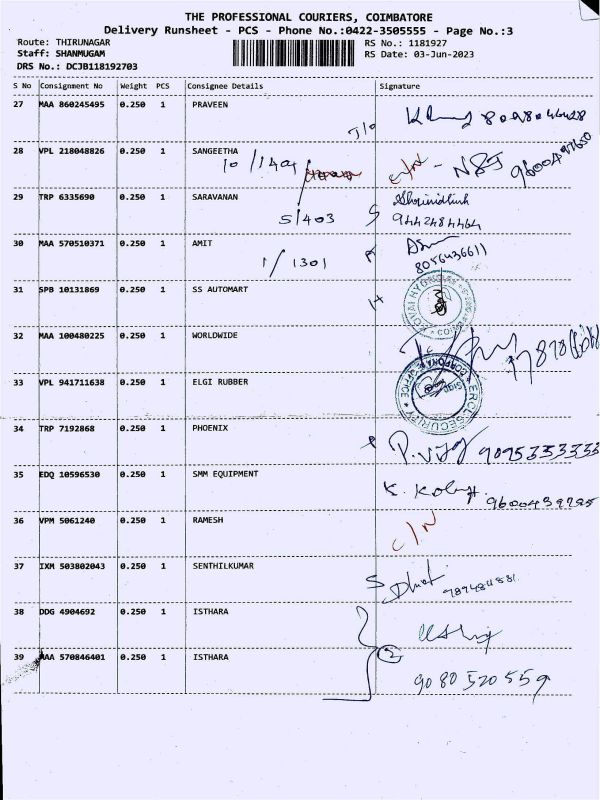 THE PROFESSIONAL COURIERS, COIMBATORE
Delivery Runsheet - PCS - Phone No.:0422-3505555 - Page No.:3
Route: THIRUNAGAR
RS No.: 1181927
Staff: SHANMUGAM
RS Date: 03-Jun-2023
DRS No.: DCJB118192703
S No Consignment No Weight PCS Consignee Details Signature
27 MAA 860245495 0.250 1 PRAVEEN
28 VPL 218048826 0.250 1 SANGEETHA
10/1404
C/N - NSJ
9600497650
29 TRP 6335690 0.250 1 SARAVANAN
S/403
9442484464
30 MAA 570510371 0.250 1 AMIT
1/1301
8056436611
31 SPB 10131869 0.250 1 SS AUTOMART
32 MAA 100480225 0.250 1 WORLDWIDE
33 VPL 941711638 0.250 1 ELGI RUBBER
ERCL SECURITY
CORPORATE OFFICE
34 TRP 7192868 0.250 1 PHOENIX
P. Vijay 9095353333
35 EDQ 10596530 0.250 1 SMM EQUIPMENT
9600439795
36 VPM 5061240 0.250 1 RAMESH
C/N
37 IXM 503802043 0.250 1 SENTHILKUMAR
38 DDG 4904692 0.250 1 ISTHARA
39 MAA 570846401 0.250 1 ISTHARA
2
9080520559